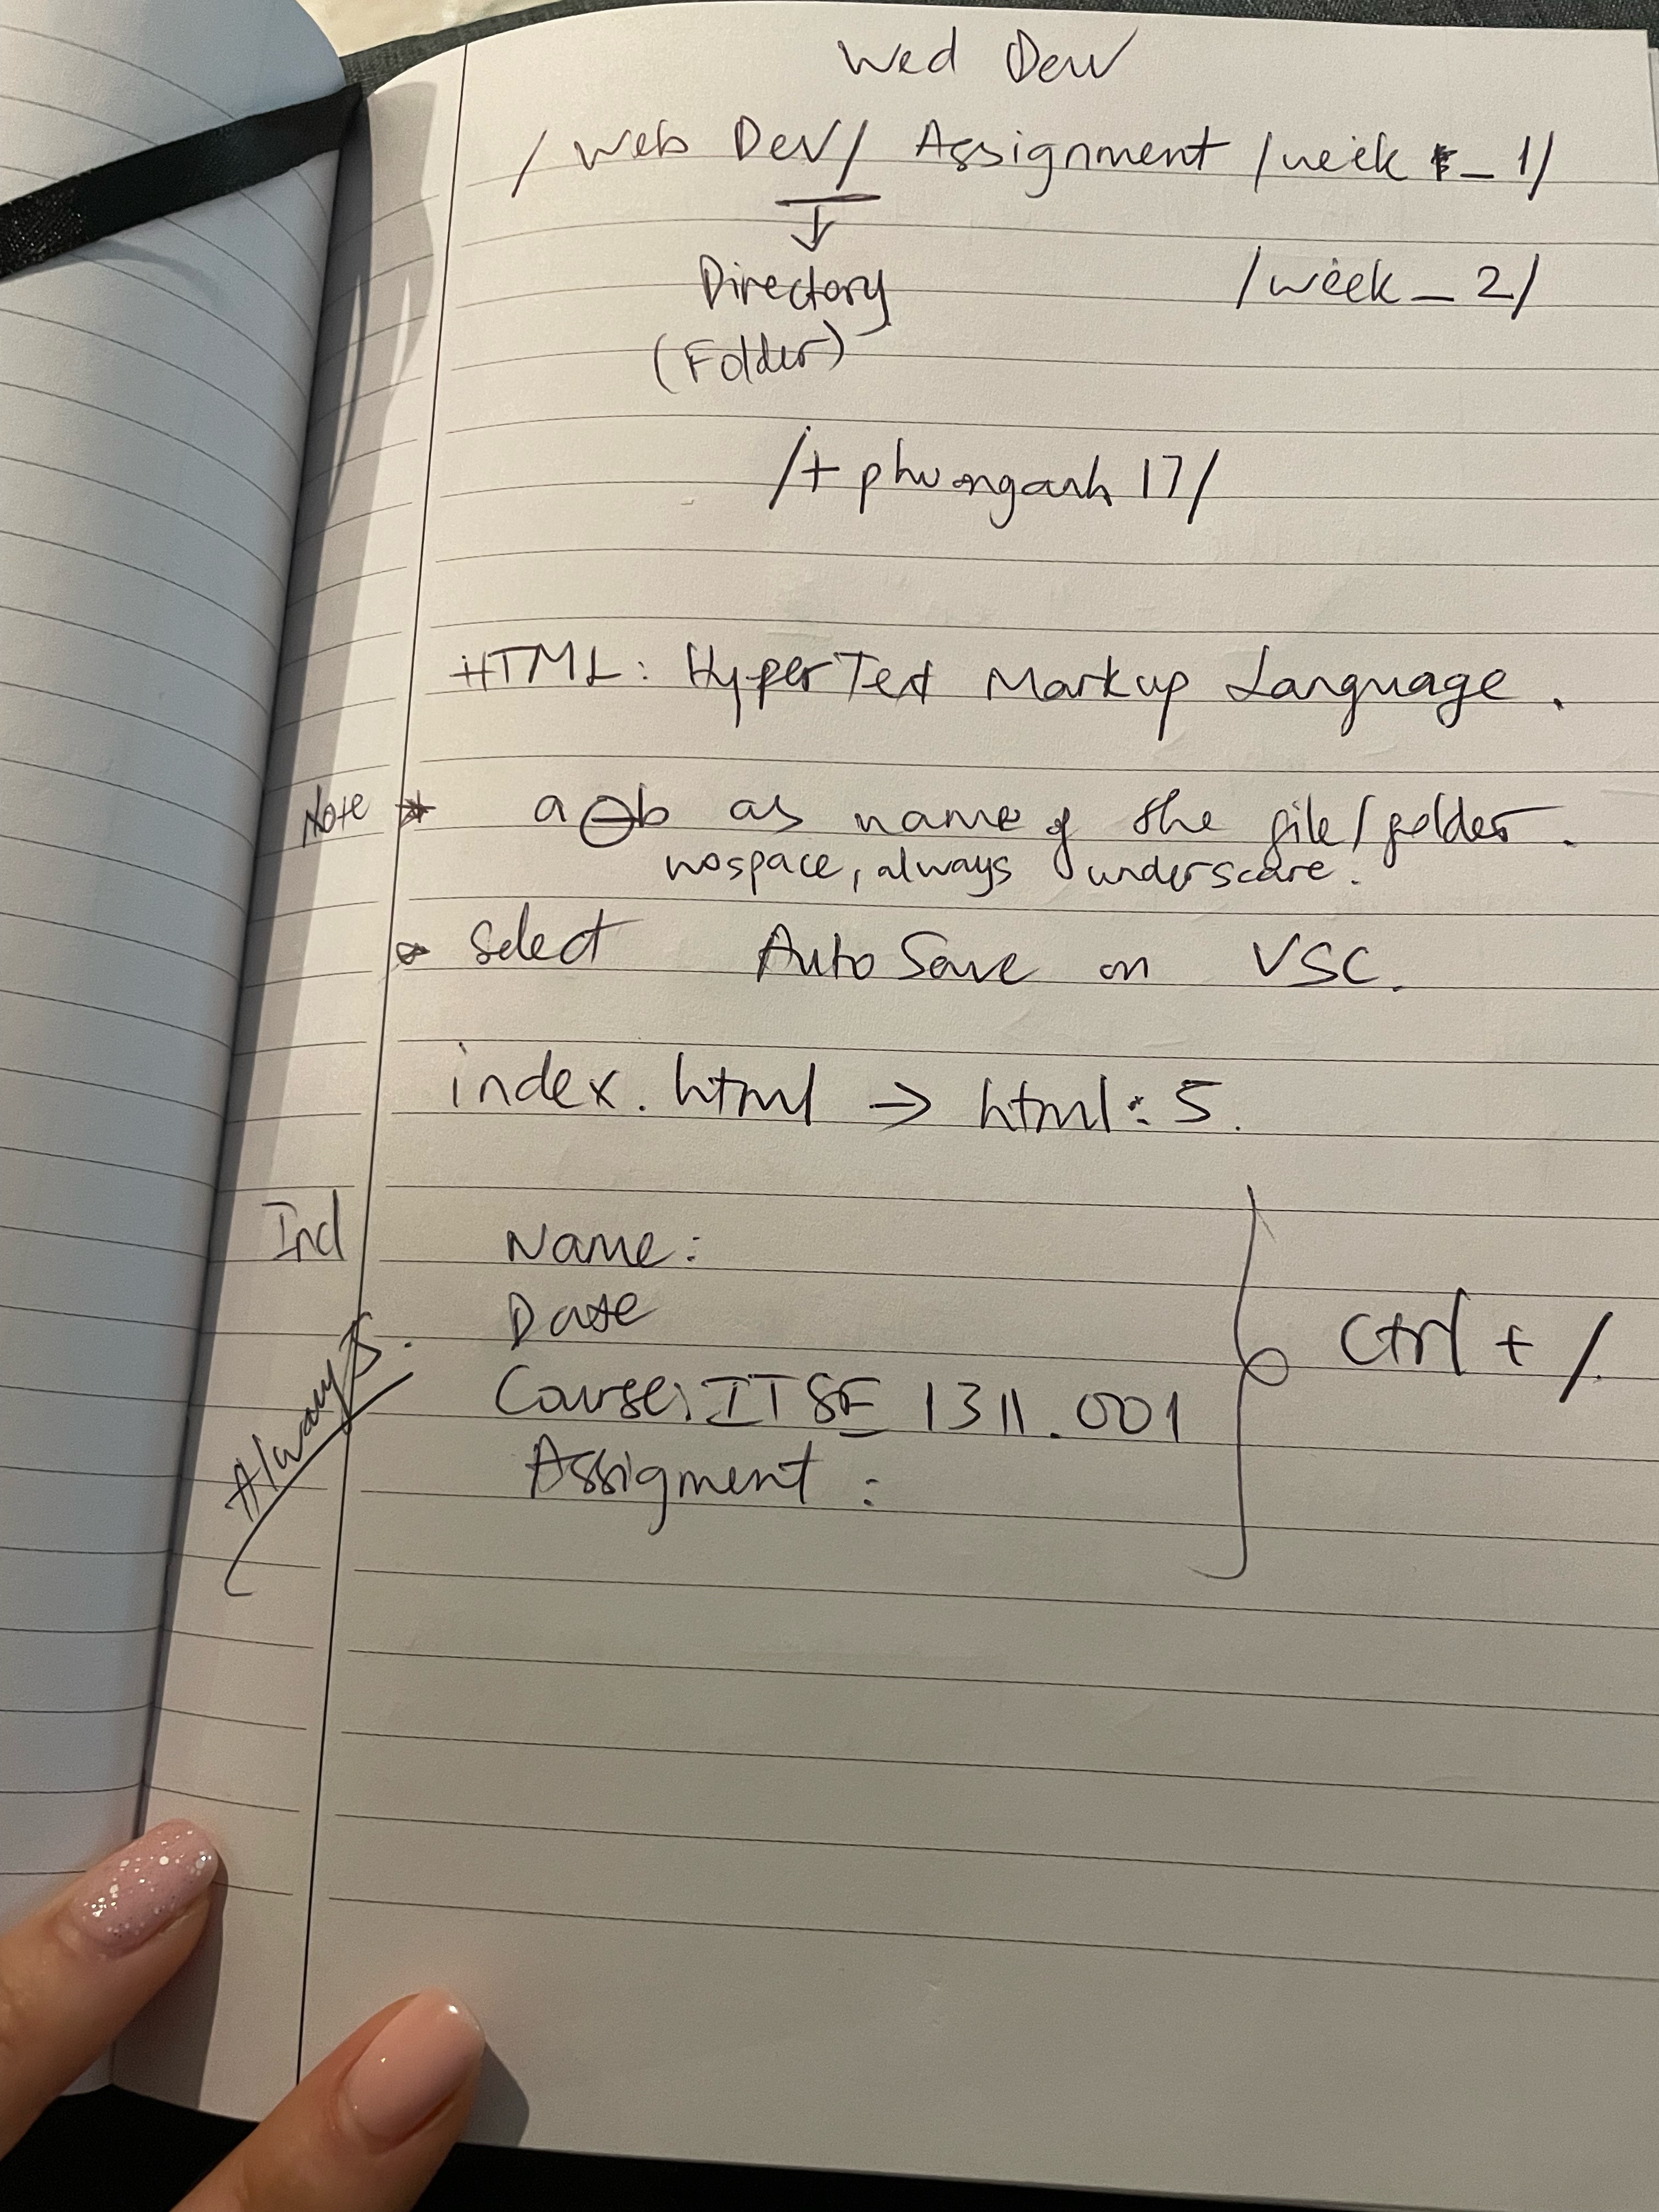 Wed Dev
/ Web Dev / Assignment / week _ 1/
Directory
/ week _ 2/
(Folder)
/+ phuonganh 17/
HTML: HyperText Markup Language.
Note * a _ b as name of the file/folder.
no space, always underscore.
select Auto Save on VSC.
index.html → html:5.
Incl
Name:
Date
Ctrl + /
Always.
Course: ITSE 1311.001
Assigment :